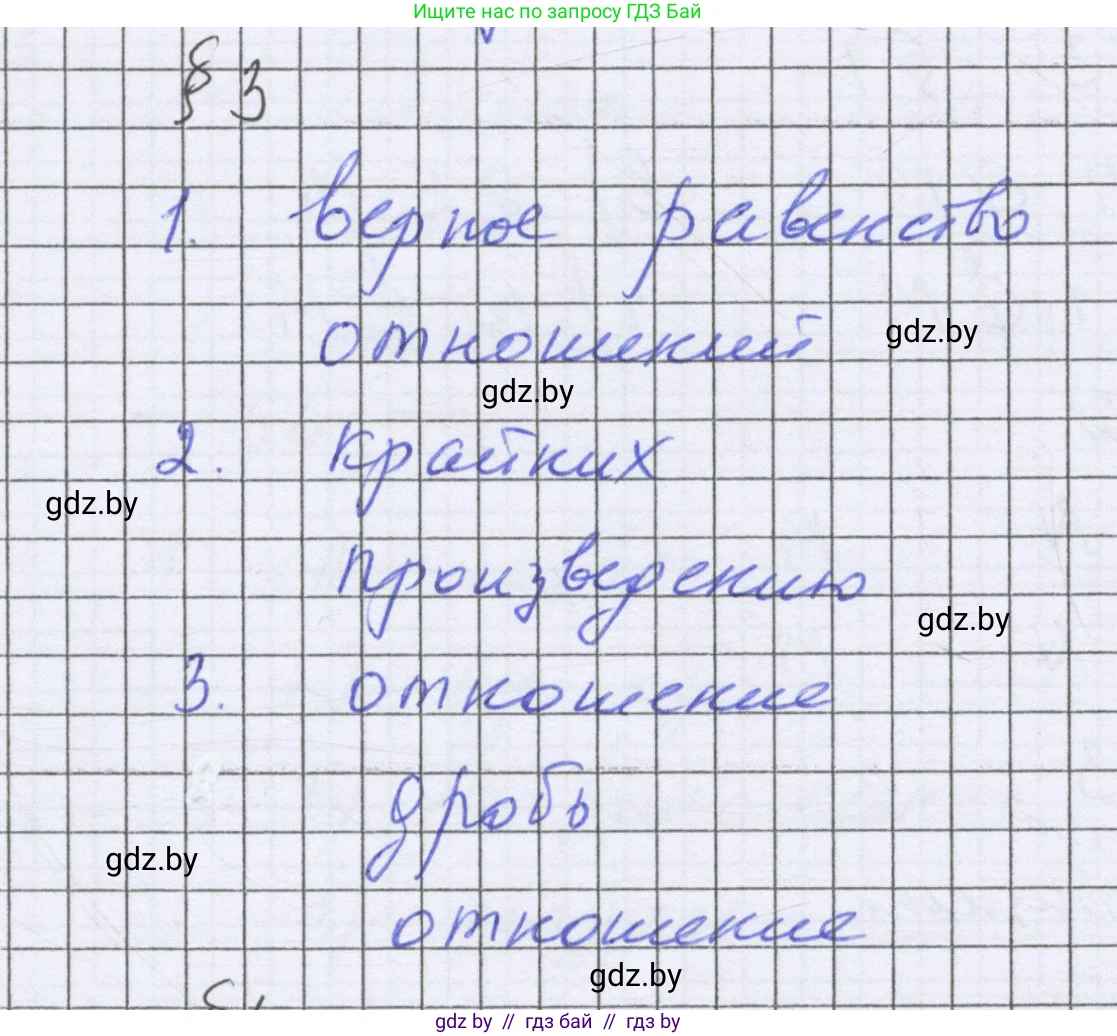 Ищите нас по запросу ГДЗ Бай
§ 3
1. верное равенство
отношений
gdz.by
gdz.by
2. крайних
gdz.by
произведению
gdz.by
3. отношение
дробь
gdz.by
отношение
gdz.by
gdz by // гдз бай // гдз by